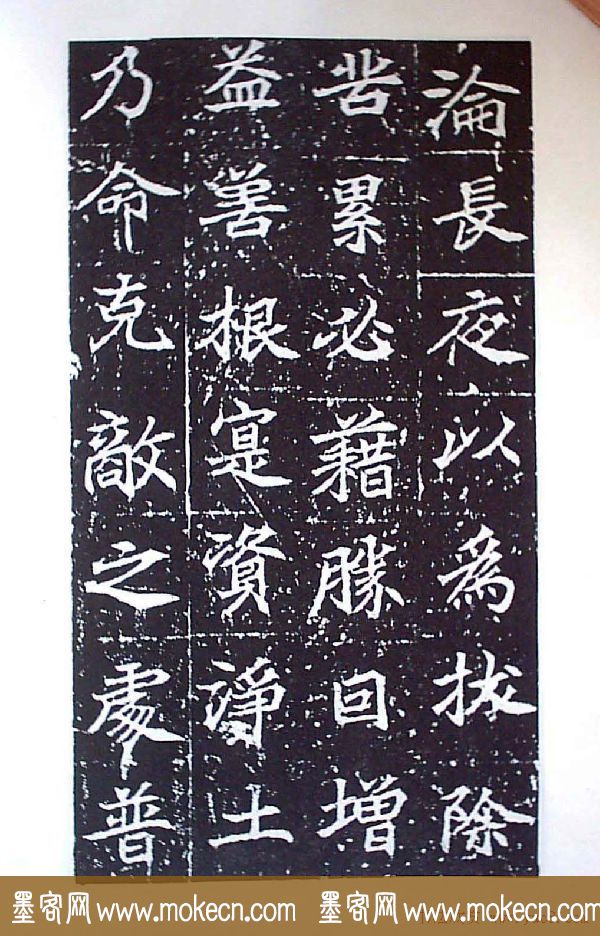 淪長夜以為拔除
苦累必藉勝囙增
益善根寔資淨土
乃命克敵之處普
墨客网 www.mokecn.com 墨客网 www.mokecn.com